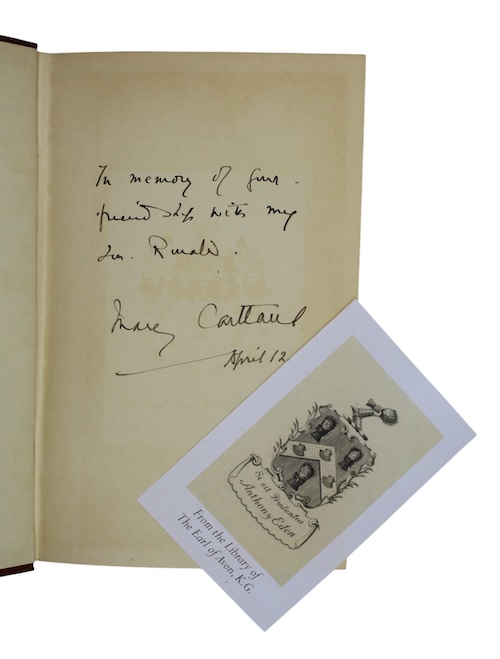 In memory of your
friendship with my
son. Ronald.
Mary Cartland
April 12
Si sit Prudentia
Anthony Eden
From the Library of
The Earl of Avon, K.G.